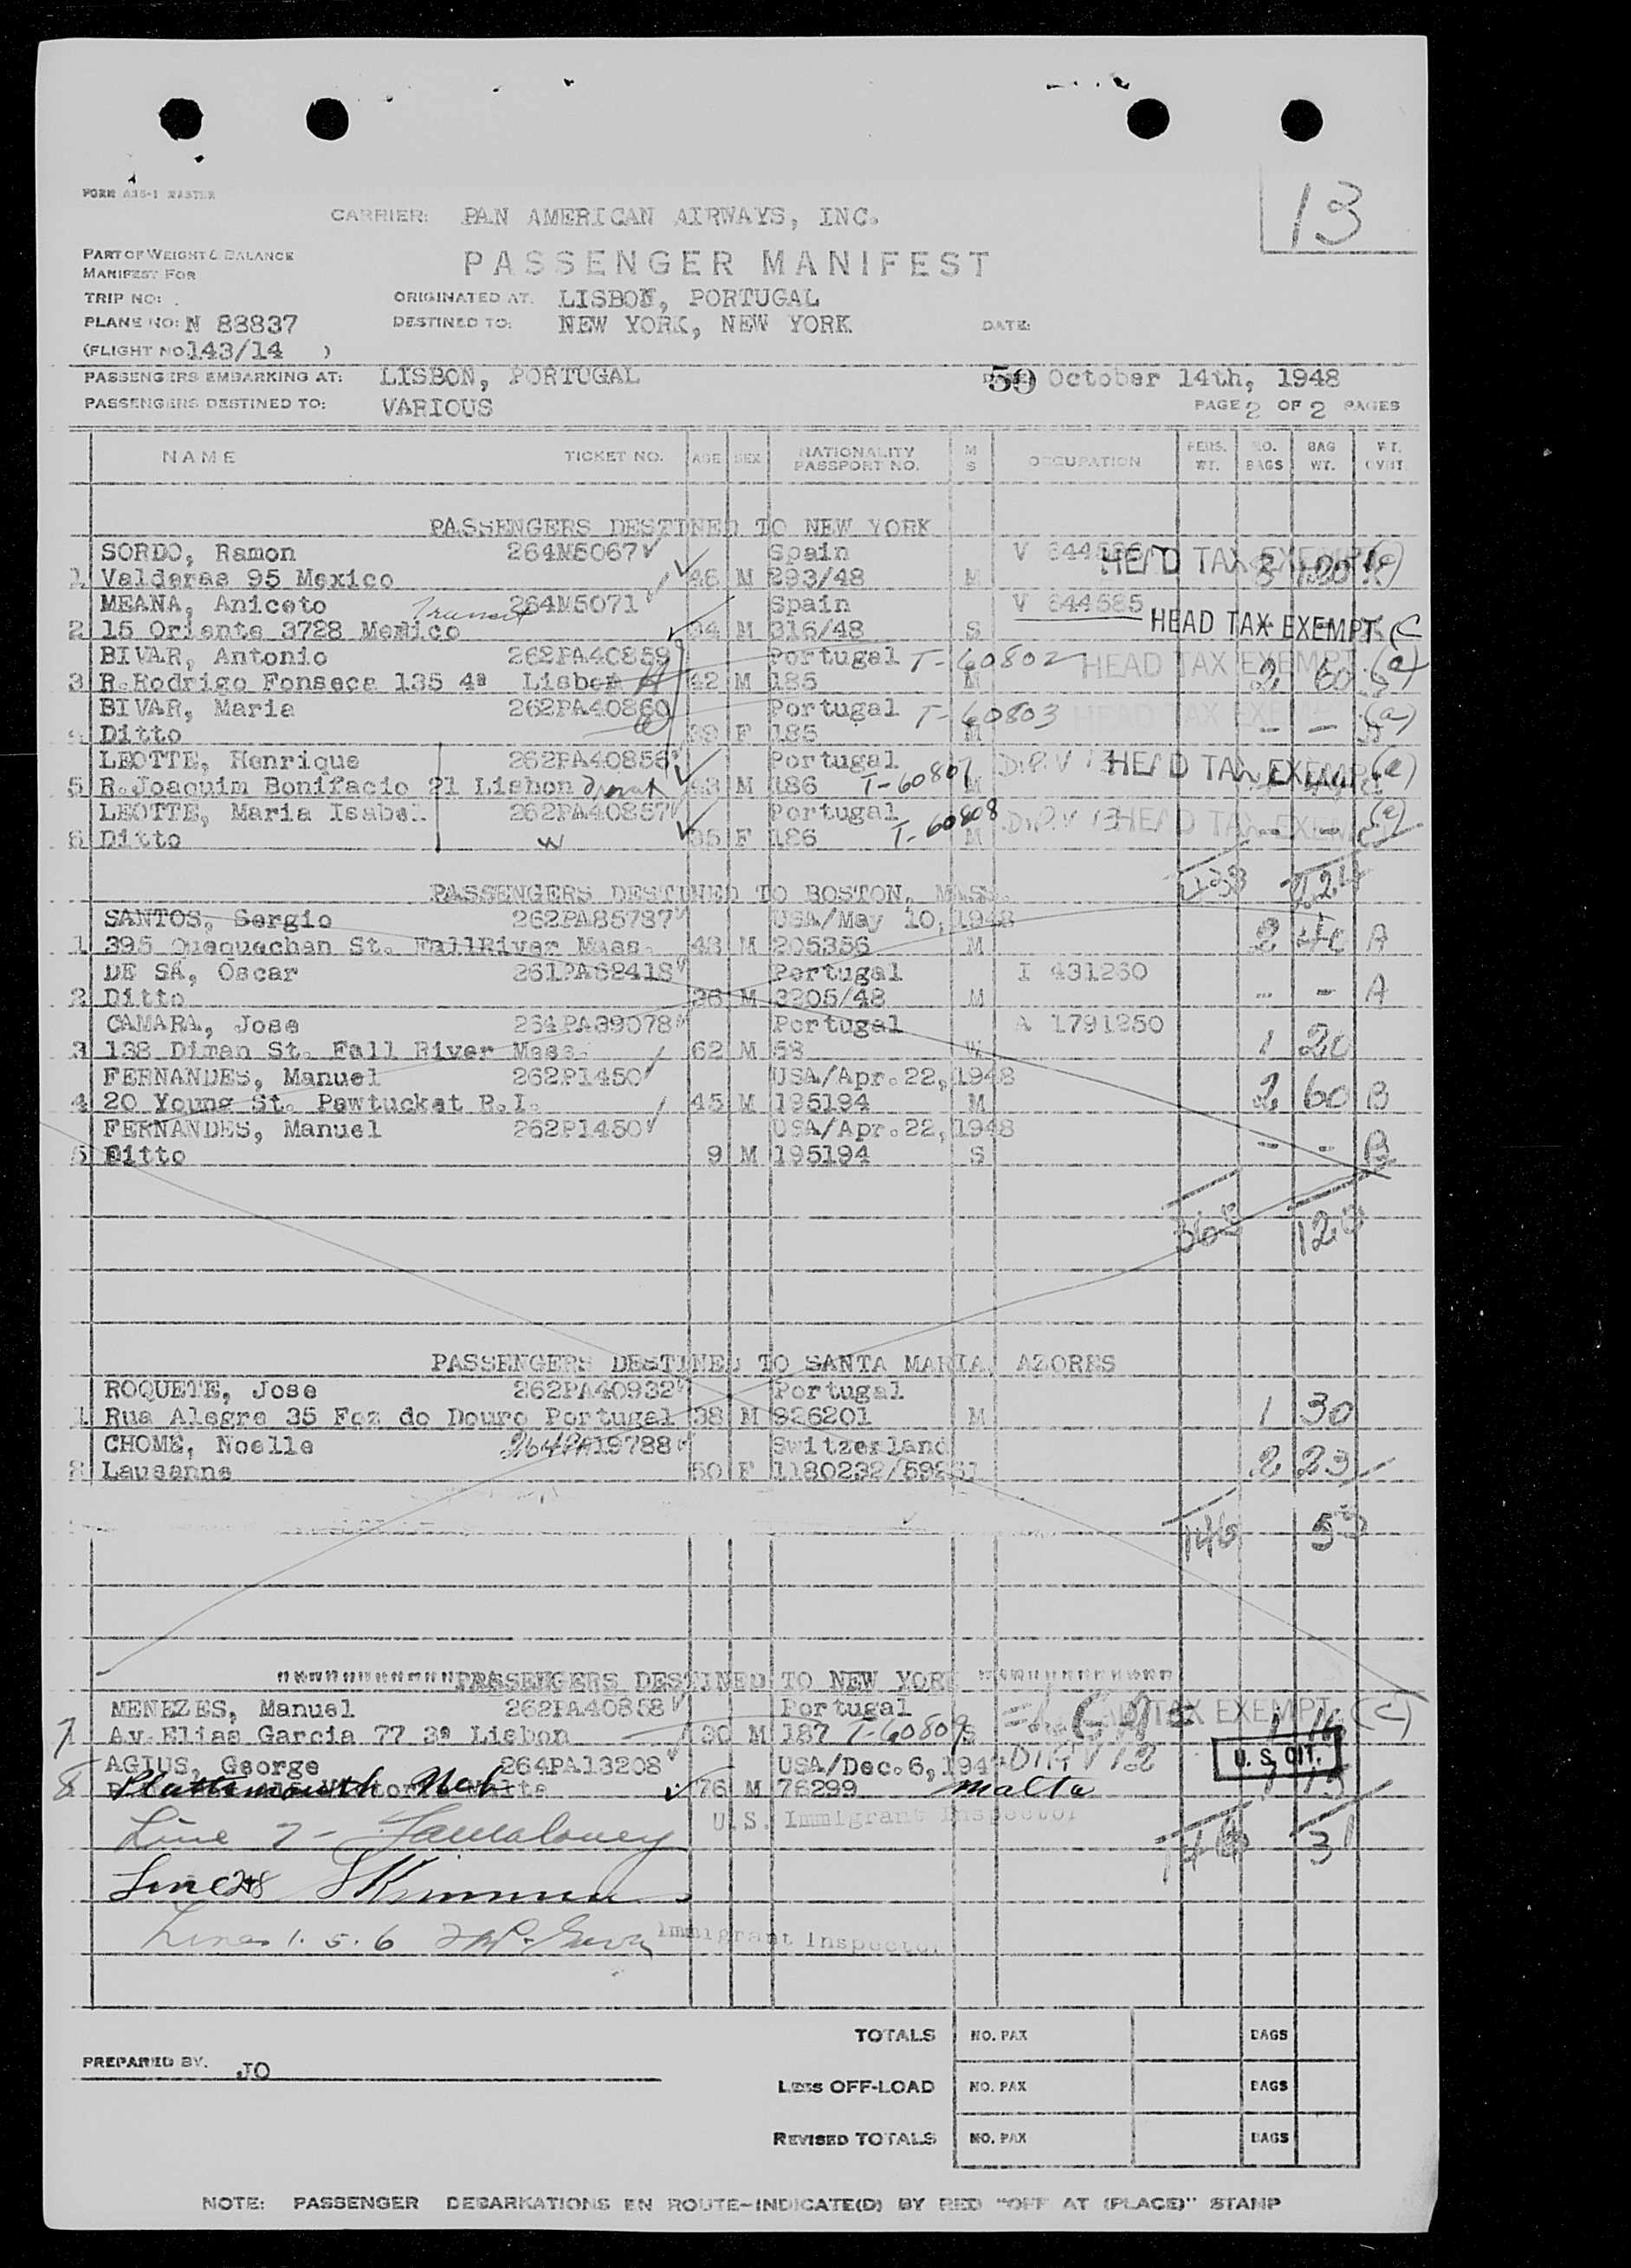 13
FORM A35-1 MASTER
CARRIER: PAN AMERICAN AIRWAYS, INC.
PART OF WEIGHT & BALANCE
MANIFEST FOR
PASSENGER MANIFEST
TRIP NO: ORIGINATED AT: LISBON, PORTUGAL
PLANE NO: N 88837 DESTINED TO: NEW YORK, NEW YORK DATE:
(FLIGHT NO 143/14 )
PASSENGERS EMBARKING AT: LISBON, PORTUGAL 50 October 14th, 1948
PASSENGERS DESTINED TO: VARIOUS PAGE 2 OF 2 PAGES
NAME TICKET NO. AGE SEX NATIONALITY PASSPORT NO. M S OCCUPATION PERS. WT. NO. BAGS BAG WT.
PASSENGERS DESTINED TO NEW YORK
SORDO, Ramon 264M5067 Spain V HEAD TAX EXEMPT
1 Valderas 95 Mexico 46 M 293/48 M
MEANA, Aniceto Transit 264M5071 Spain V 644585
2 15 Oriente 3728 Mexico M 316/48 S HEAD TAX EXEMPT (C
BIVAR, Antonio 262PA40859 Portugal T-60802 HEAD TAX EXEMPT (a)
3 R.Rodrigo Fonseca 135 4ª Lisbon 42 M 185 M 2 60
BIVAR, Maria 262PA40860 Portugal T-60803 HEAD TAX EXEMPT (a)
4 Ditto 39 F 185 M - -
LEOTTE, Henrique 262PA40856 Portugal HEAD TAX EXEMPT
5 R.Joaquim Bonifacio 21 Lisbon 43 M 186 T-60807 M
LEOTTE, Maria Isabel 262PA40857 Portugal T-60808 HEAD TAX EXEMPT
6 Ditto 35 F 186 M - -
PASSENGERS DESTINED TO BOSTON, MASS.
SANTOS, Sergio 262PA85787 USA/May 10, 1948
1 395 Quequechan St. FallRiver Mass. 48 M 205356 M 2 40 A
DE SÁ, Oscar 261PA62418 Portugal I 431260
2 Ditto 36 M 3205/48 M - - A
CAMARA, Jose 264PA39078 Portugal A 1791250
3 138 Diman St. Fall River Mass. 62 M 58 W 1 20
FERNANDES, Manuel 262P1450 USA/Apr.22, 1948
4 20 Young St. Pawtucket R.I. 45 M 195194 M 2 60 B
FERNANDES, Manuel 262P1450 USA/Apr.22, 1948
5 Ditto 9 M 195194 S - - B
PASSENGERS DESTINED TO SANTA MARIA, AZORES
ROQUETE, Jose 262PA40932 Portugal
1 Rua Alegre 35 Foz do Douro Portugal 38 M 926201 M 1 30
CHOME, Noelle 264PA19788 Switzerland
2 Lausanne 50 F 2 23
146 53
PASSENGERS DESTINED TO NEW YORK
MENEZES, Manuel 262PA40858 Portugal TAX EXEMPT (C)
7 Av.Elias Garcia 77 3ª Lisbon 30 M 187 T-60809 S 1 16
AGIUS, George 264PA13208 USA/Dec.6, U. S. CIT.
8 Plattsmouth Neb 76 M 76299 Malta 1 15
U.S. Immigrant Inspector
Line 7 -
31
Line
Lines 1. 5. 6 Immigrant Inspector
TOTALS NO. PAX BAGS
PREPARED BY. JO
LESS OFF-LOAD NO. PAX BAGS
REVISED TOTALS NO. PAX BAGS
NOTE: PASSENGER DEBARKATIONS EN ROUTE-INDICATE(D) BY RED "OFF AT (PLACE)" STAMP